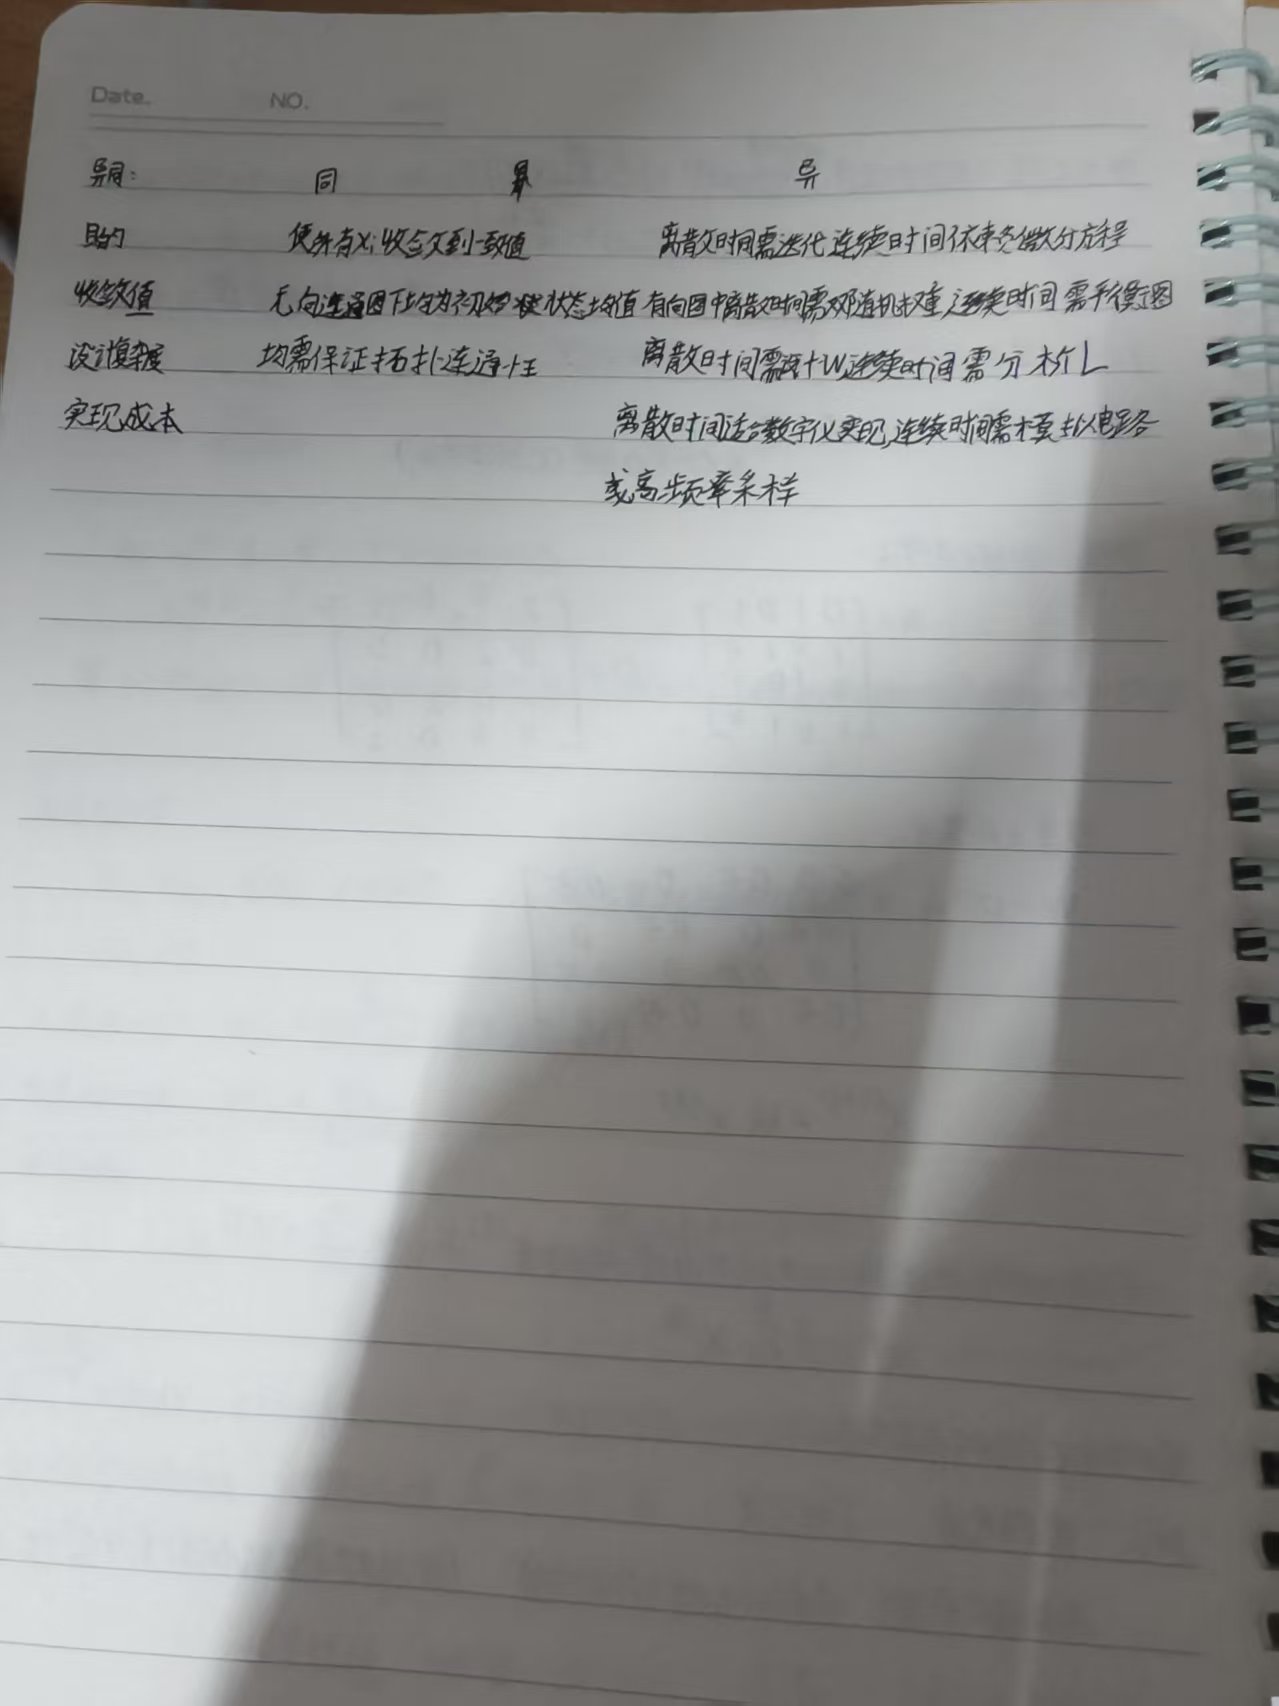 Date. NO.
异同: 同 异
目的 使所有xi收敛到一致值 离散时间需迭代 连续时间依赖微分方程
收敛值 无向连通图下均为初始状态均值 有向图中离散时间需双随机权重,连续时间需平衡图
设计复杂度 均需保证拓扑连通性 离散时间需设计W,连续时间需分析L
实现成本 离散时间适合数字仪实现,连续时间需模拟电路
或高频率采样